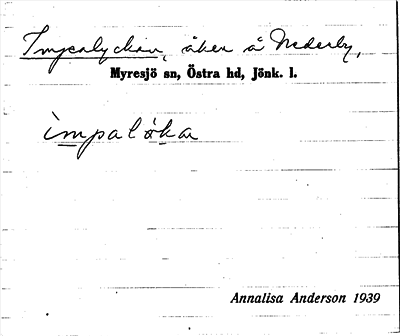 Impalyckan, åker å Nederby,
Myresjö sn, Östra hd, Jönk. l.
ìmpalö́ka
Annalisa Anderson 1939